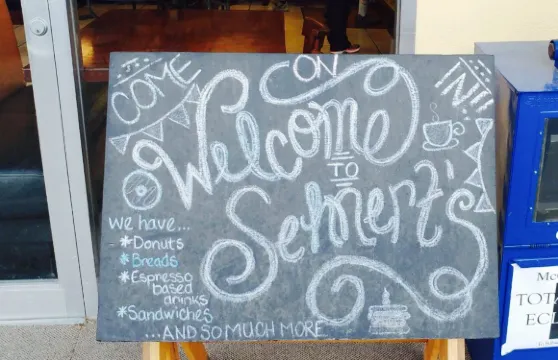 COME ON IN!!
Welcome
TO
Sehnert's
We have...
*Donuts
*Breads
*Espresso
based
drinks
*Sandwiches
...AND SO MUCH MORE
TOT
ECL